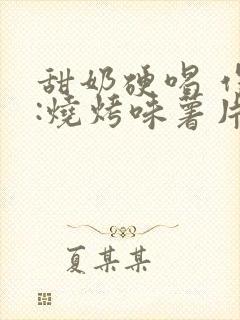 甜奶硬喝
:燒烤味薯片
夏某某